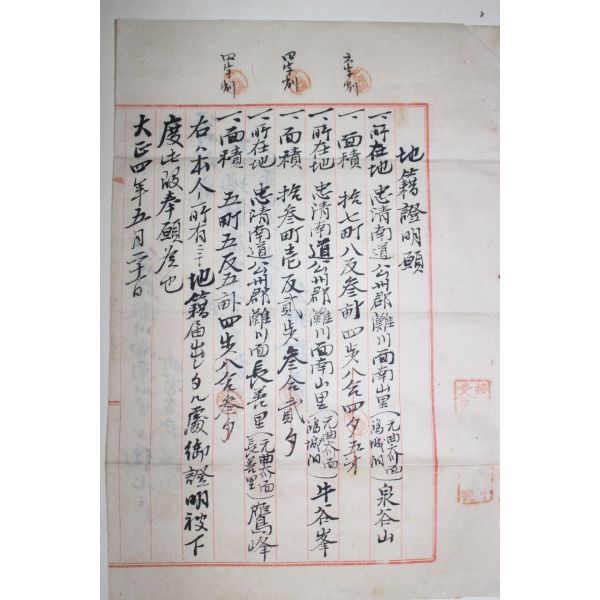 六字削
四字削
四字削
地籍證明願
一、所在地 忠清南道公州郡灘川面南山里(元曲火面)泉谷山
一、面積 拾七町八反叁畝四步八合四夕五才
一、所在地 忠清南道公州郡灘川面南山里(元曲火面)牛谷峯
一、面積 拾叁町壱反貳步叁合貳夕
一、所在地 忠清南道公州郡灘川面長善里(元曲火面長善里)鷹峰
一、面積 五町五反五畝四步八合叁夕
右ハ本人ノ所有ニテ地籍届出タル處御證明被下
度此段奉願候也
大正四年五月二十一日